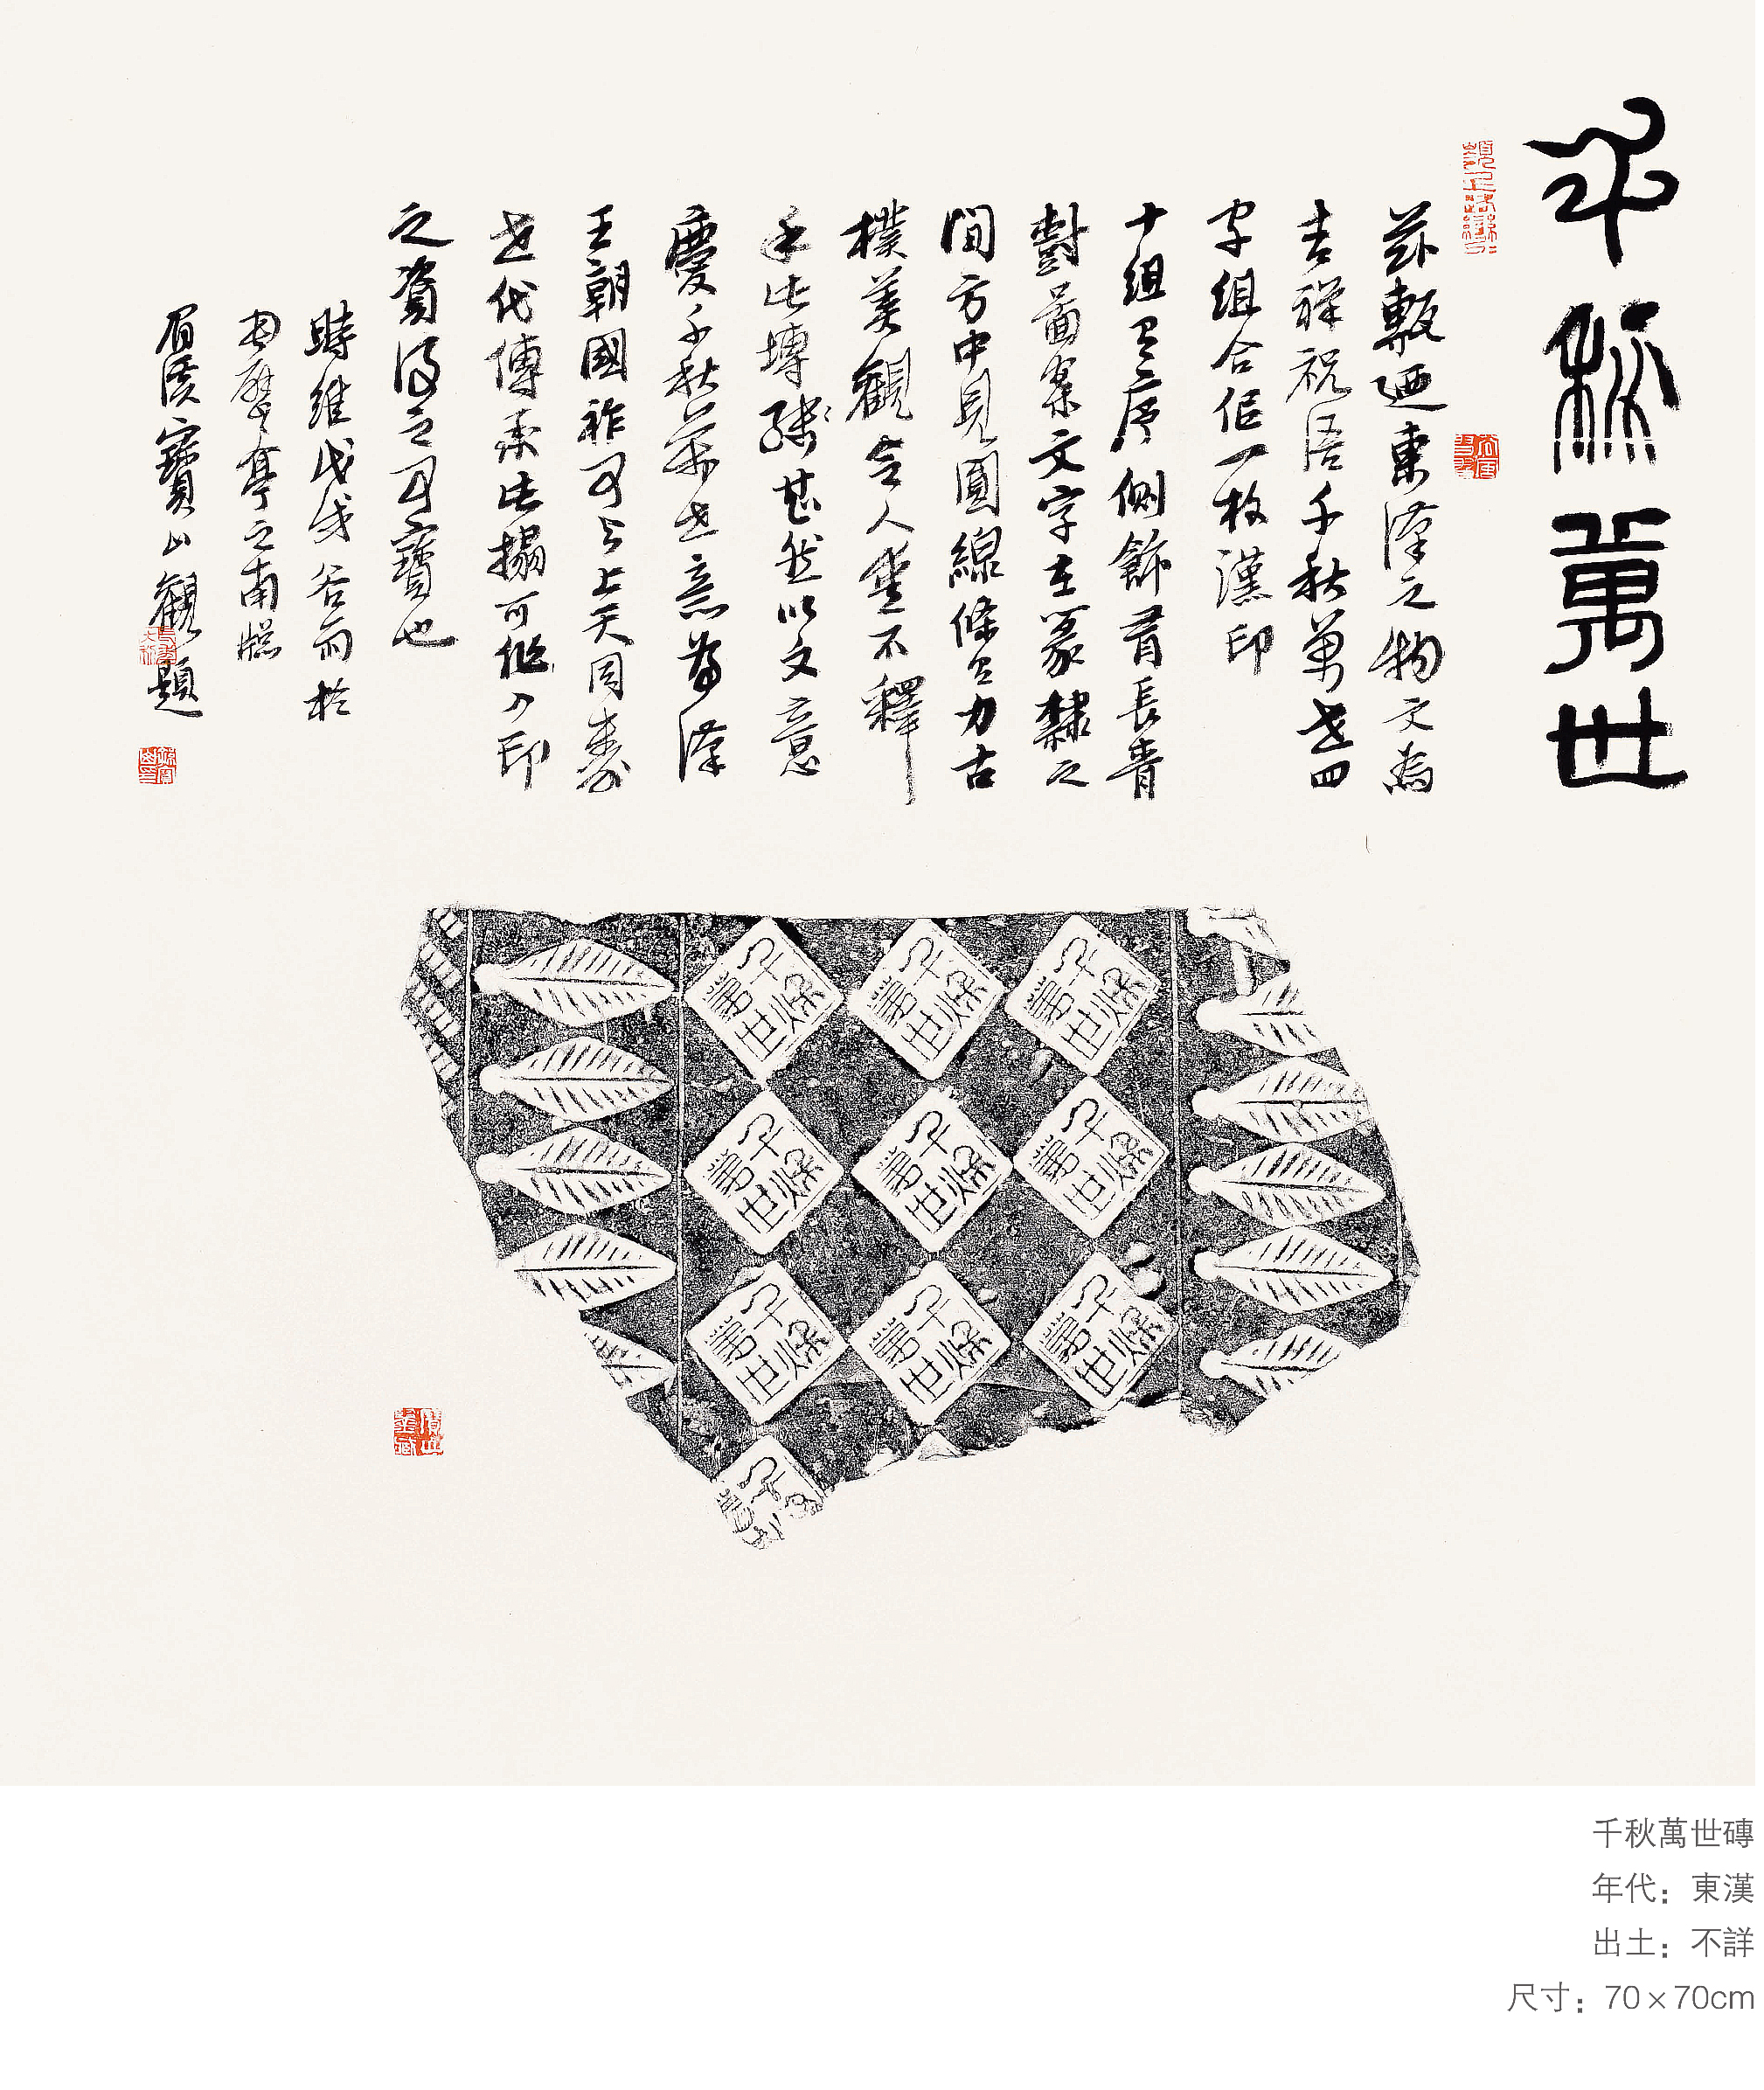 千秌萬世
茲甎迺東漢之物文為
吉祥祝語千秋萬世四
字組合作一枚漢印
十組有序側飾有長青
對葉圖案文字在篆隸之
間方中見圓線條有力古
樸美觀令人愛不釋
手此塼殘甚然以文意
慶千秋萬世意為漢
王朝國祚可與上天同壽
世代傳承此搨可作入印
之資得之可寶也
時維戊戌谷雨於
亭之南牕
眉溪寶山觀題
千秋萬世
千秋萬世
千秋萬世
千秋萬世
千秋萬世
千秋萬世
千秋萬世
千秋萬世
千秋萬世
千秋萬世磚
年代：東漢
出土：不詳
尺寸：70×70cm